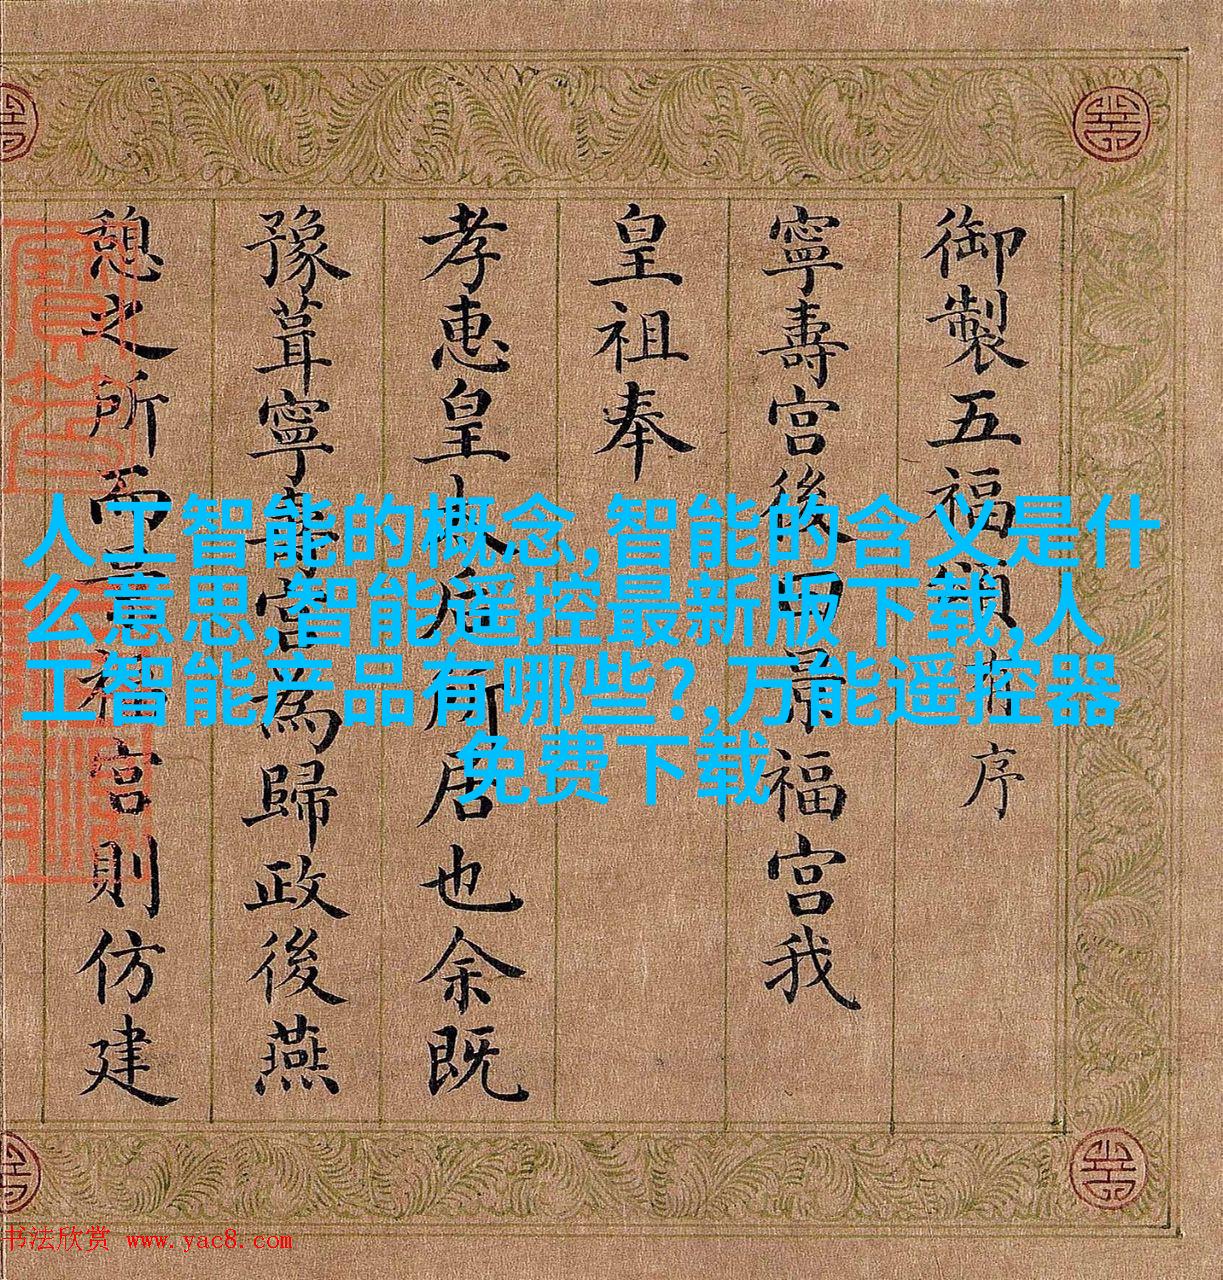 御製五福頌序
寧壽宮後曰景福宮我
皇祖奉
孝惠皇太后所居也余既
豫葺寧壽宮為歸政後燕
憩之所而景福宮則仿建
人工智能的概念,智能的含义是什
么意思,智能遥控最新版下载,人
工智能产品有哪些?,万能遥控器
免费下载
书法欣赏 www.yac8.com